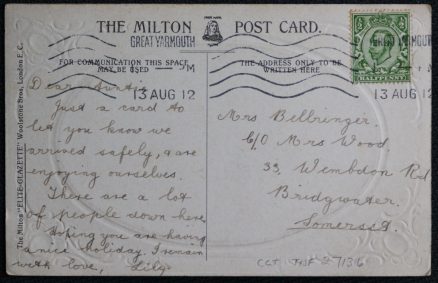 THE MILTON POST CARD.
GREAT YARMOUTH
FOR COMMUNICATION THIS SPACE
MAY BE USED
THE ADDRESS ONLY TO BE
WRITTEN HERE
13 AUG 12
HALFPENNY
YARMOUTH
13 AUG 12
The Milton "ELITE-GLAZETTE" Woolstone Bros, London E.C.
Dear Auntie
Just a card to
let you know we
arrived safely, & are
enjoying ourselves.
There are a lot
of people down here
Hoping you are having
a nice holiday. I remain
with love, Lily
Mrs Bellringer.
C/O Mrs Wood.
33, Wembdon Rd
Bridgwater.
Somerset.
7136